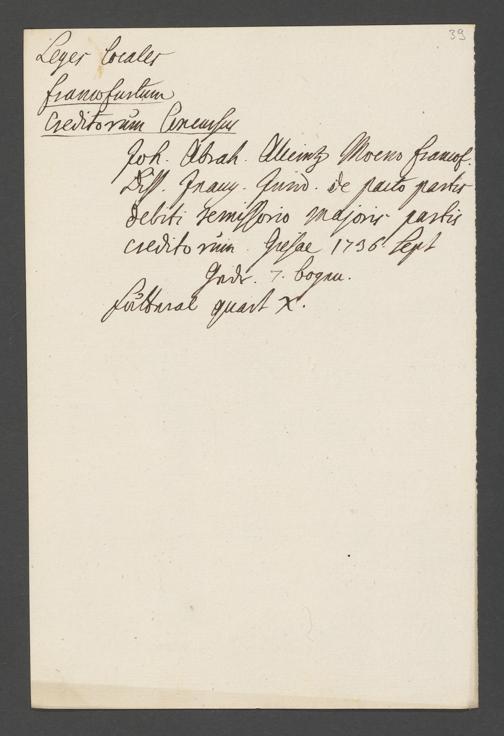 39
Leges Locales
francofurtum
Creditorum Concursus
Joh. Abrah. Moeno francof.
Diss. Inaug. de pacto partis
debiti remissorio majoris partis
creditorum. Giesae 1736 Sept
7. bogen.
quart X.